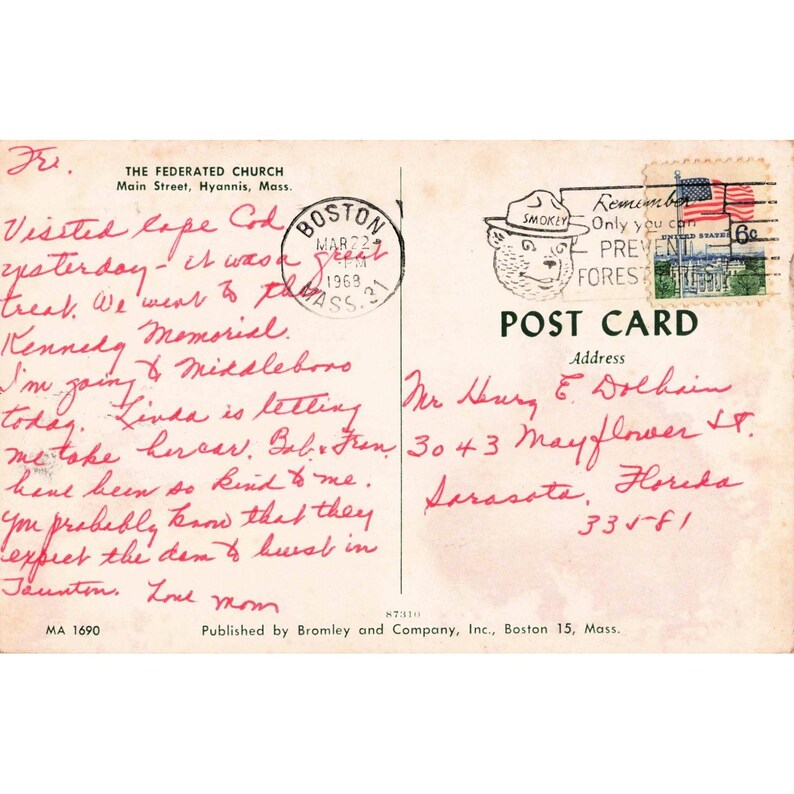 Fri.
THE FEDERATED CHURCH
Main Street, Hyannis, Mass.
Visited Cape Cod
yesterday - it was a great
treat. We went to the
Kennedy Memorial.
I'm going to Middleboro
today. Linda is letting
me take her car. Bob & Fran
have been so kind to me.
You probably know that they
expect the dam to burst in
Taunton. Love Mom
BOSTON
MAR 22
PM
1968
MASS. 31
SMOKEY
Remember
Only you can
PREVENT
FOREST FIRES
UNITED STATES 6c
POST CARD
Address
Mr Henry E. Dolhain
3043 Mayflower St.
Sarasota, Florida
33581
87310
MA 1690
Published by Bromley and Company, Inc., Boston 15, Mass.